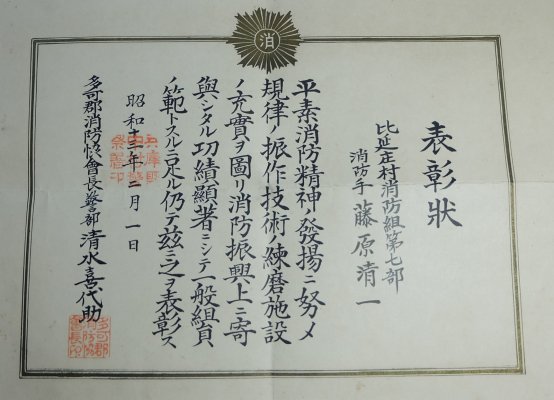 消
表彰狀
比延庄村消防組第七部
消防手 藤原清一
平素消防精神ノ發揚ニ努メ
規律ノ振作技術ノ練磨施設
ノ充實ヲ圖リ消防振興上ニ寄
與シタル功績顯著ニシテ一般組員
ノ範トスルニ足ル仍テ玆ニ之ヲ表彰ス
昭和十二年二月一日
多可郡消防協會長警部 清水喜代助
多可郡
消防協
會長之印